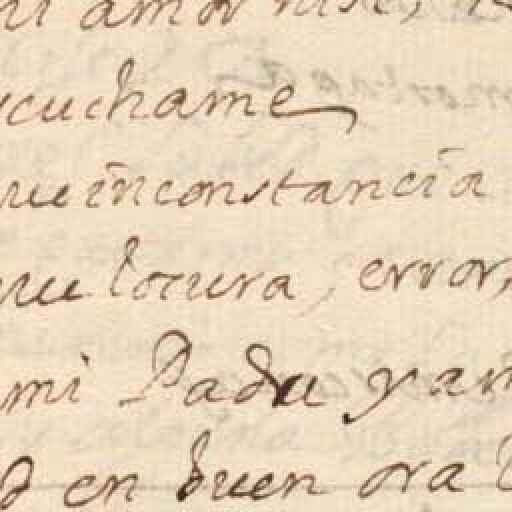 mi amor
escuchame
que inconstancia
que locura, error,
mi Padre y am
d en buen ora